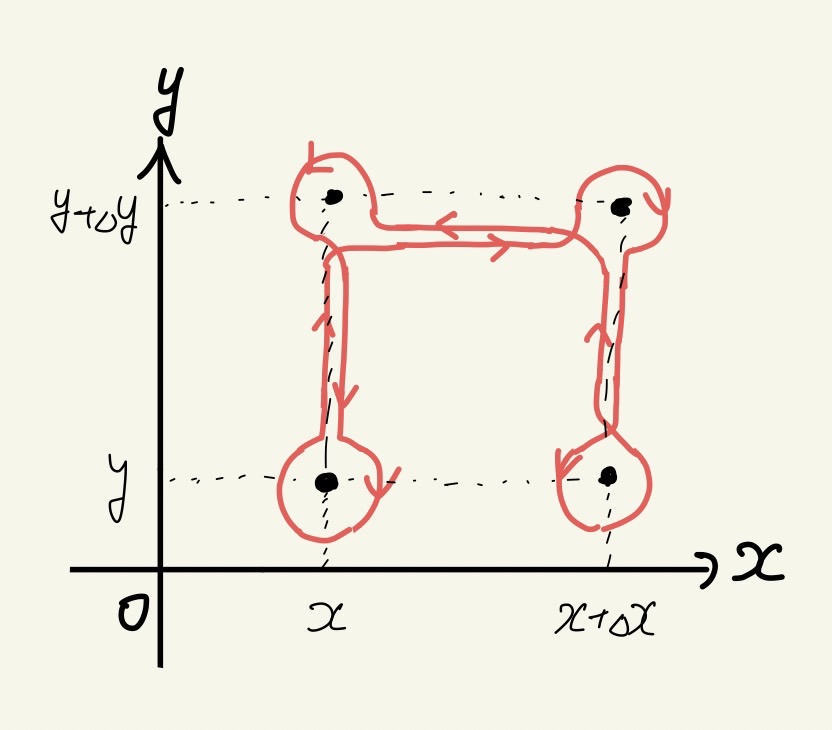 y
y+△y
y
x
0
x
x+△x